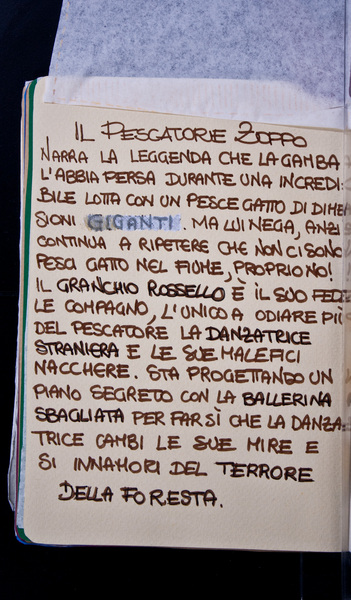 IL PESCATORE ZOPPO
NARRA LA LEGGENDA CHE LA GAMBA
L'ABBIA PERSA DURANTE UNA INCREDI:
BILE LOTTA CON UN PESCE GATTO DI DIMEN
SIONI GIGANTI. MA LUI NEGA, ANZI
CONTINUA A RIPETERE CHE NON CI SONO
PESCI GATTO NEL FIUME, PROPRIO NO!
IL GRANCHIO ROSSELLO È IL SUO FEDE
LE COMPAGNO, L'UNICO A ODIARE PIÙ
DEL PESCATORE LA DANZATRICE
STRANIERA E LE SUE MALEFICI
NACCHERE. STA PROGETTANDO UN
PIANO SEGRETO CON LA BALLERINA
SBAGLIATA PER FAR SÌ CHE LA DANZA:
TRICE CAMBI LE SUE MIRE E
SI INNAMORI DEL TERRORE
DELLA FORESTA.